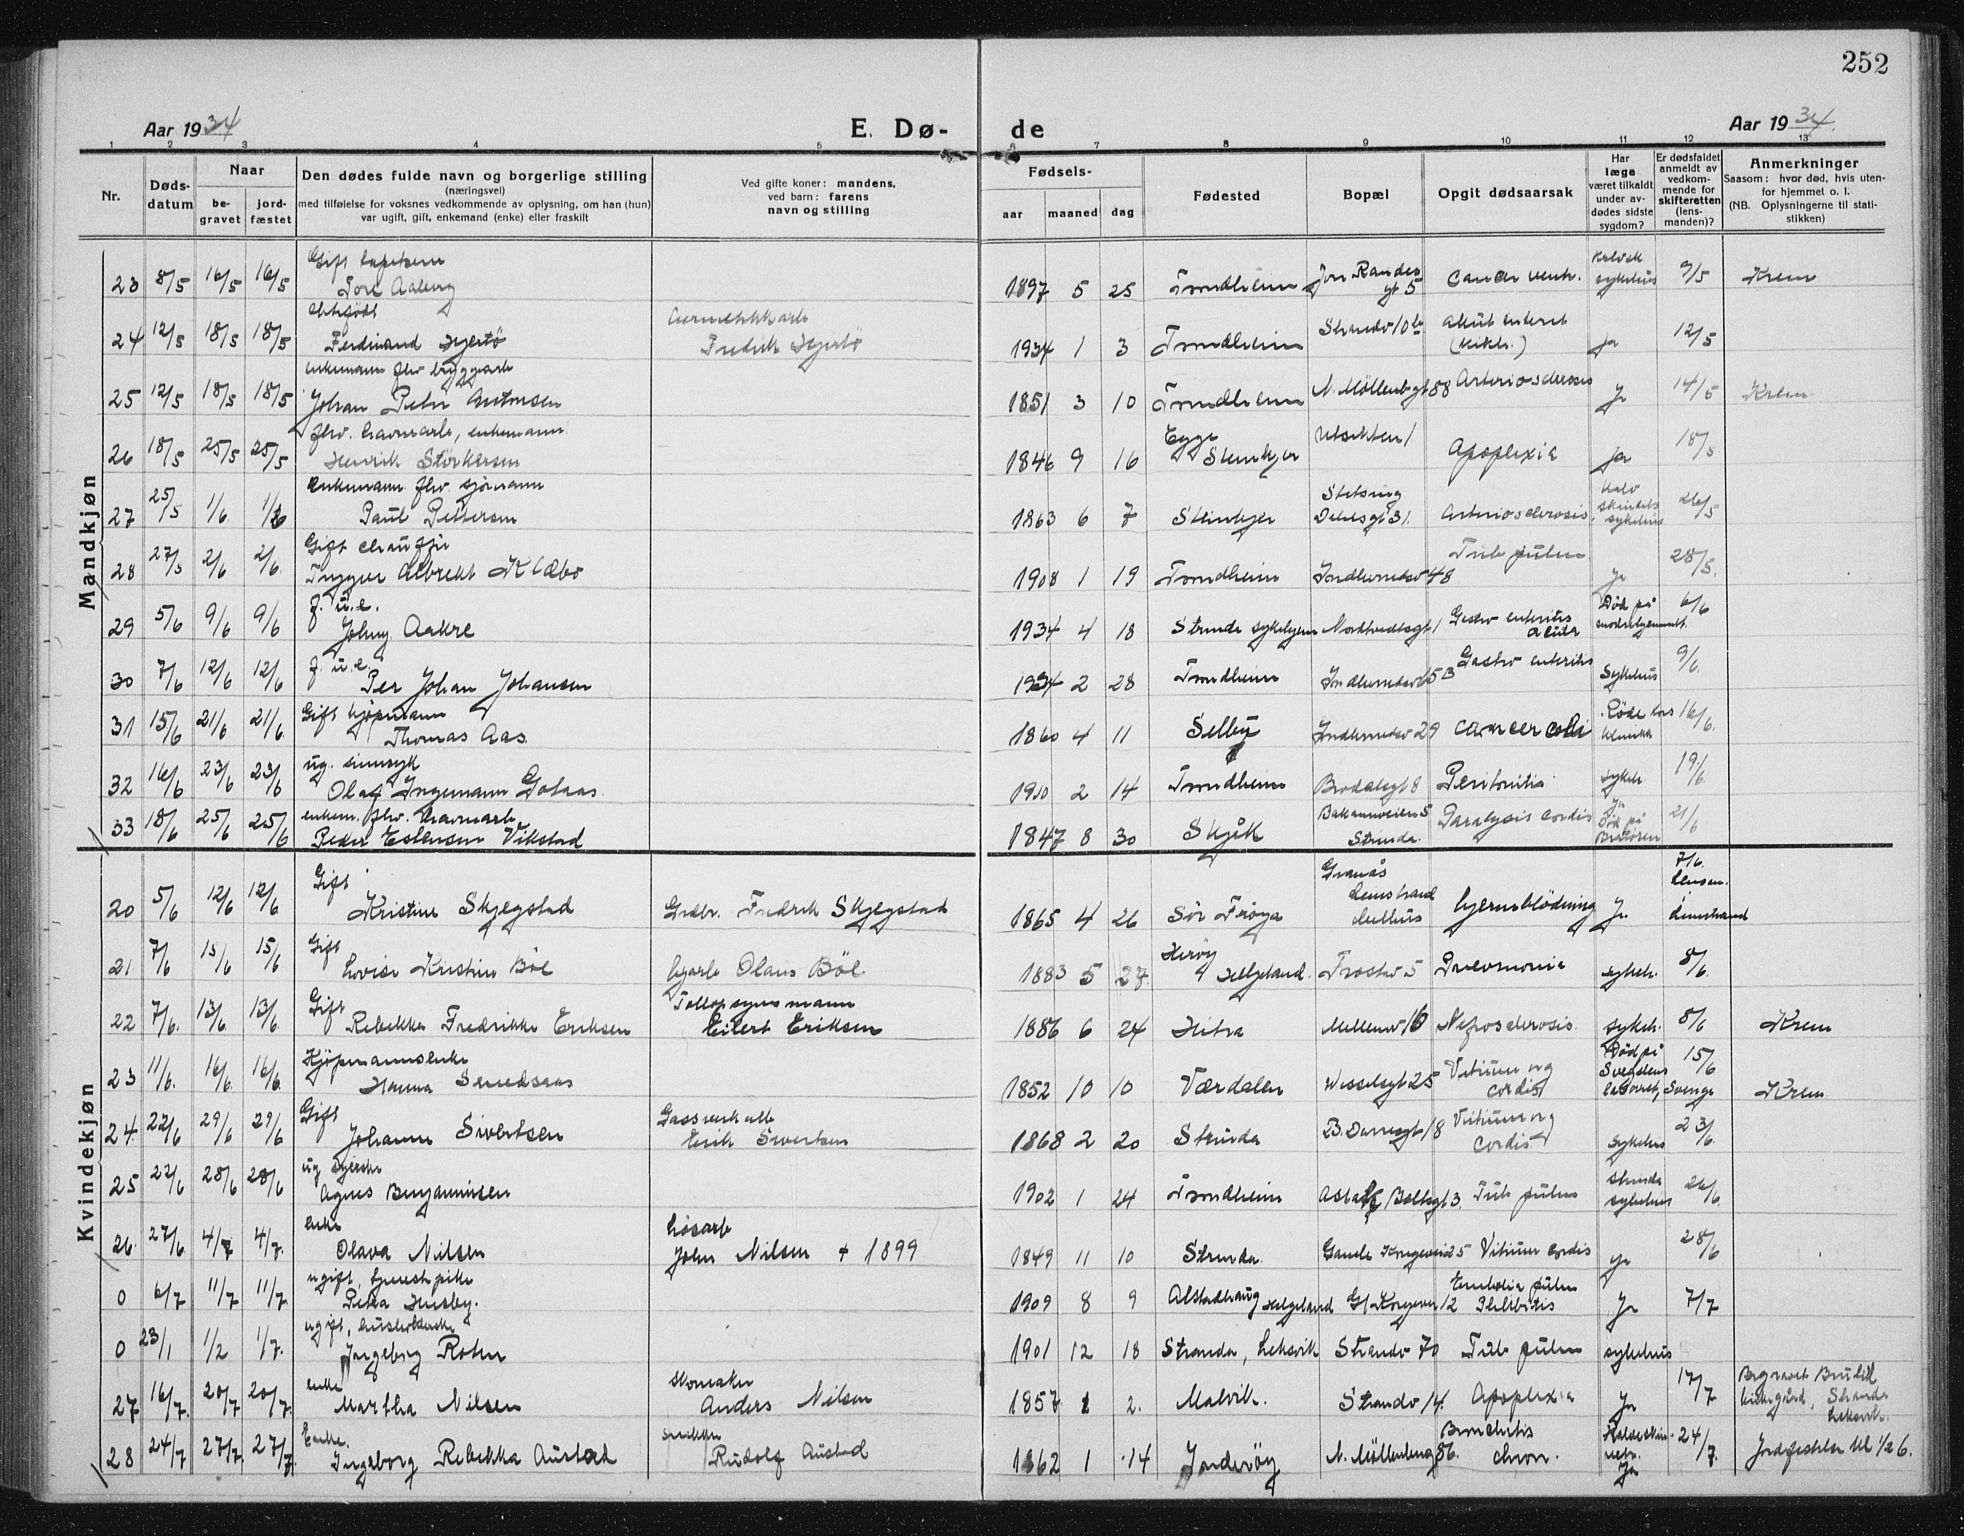 252
Aar 1934
E. Dø-
de
Aar 1934.
1 2 3 4 5 6 7 8 9 10 11 12 13
Nr.
Døds-
datum
Naar
be-
gravet
jord-
fæstet
Den dødes fulde navn og borgerlige stilling
(næringsvei)
med tilføielse for voksnes vedkommende av oplysning, om han (hun)
var ugift, gift, enkemand (enke) eller fraskilt
Ved gifte koner: mandens,
ved barn: farens
navn og stilling
Fødsels-
aar
maaned
dag
Fødested
Bopæl
Opgit dødsaarsak
Har
læge
været tilkaldt
under av-
dødes sidste
sygdom?
Er dødsfaldet
anmeldt av
vedkom-
mende for
skifteretten
(lens-
manden)?
Anmerkninger
Saasom: hvor død, hvis uten-
for hjemmet o. l.
(NB. Oplysningerne til stati-
stikken)
Mandkjøn
Gift
23 8/5 16/5 16/5 Tore Aaberg 1897 5 25 Trondheim Jon Randes gt 5 cancer ventr. sykehus 9/5 Krem
ektefødt
24 12/5 18/5 18/5 Ferdinand Hjertø Fredrik Hjertø 1934 1 3 Trondheim Strandv 10 akut enterit ja 12/5
enkemann flhv bryggearb
25 12/5 18/5 18/5 Johan Peter Antonsen 1851 3 10 Trondheim N. Möllenbgt 88 Arteriosclerosis Ja 14/5 Krem
fhv. havnearb, enkemann
26 18/5 25/5 25/5 Henrik Störkersen 1846 9 16 Egge Steinkjer Utsikten 1 Apoplexia ja 18/5
enkemann fhv. sjömann
27 25/5 1/6 1/6 Paul Pettersen 1863 6 7 Steinkjer gt 31. Arteriosclerosis sykehus 26/5
Gift chauffør
28 27/5 2/6 2/6 Tryggve Albrekt Klæbo 1908 1 19 Trondheim Indherredsv 48 Tub pulm Ja 28/5.
f. u.e.
29 5/6 9/6 9/6 Johny Aakre 1934 4 18 Strinda sykehjem gt 1 Gastro enteritis acuta Død på 6/6
f. u.e.
30 7/6 12/6 12/6 Per Johan Johansen 1934 2 28 Trondheim Indherredsv 65 B Gastro enteritis Sykehus 9/6.
Gift kjøpmann
31 15/6 21/6 21/6 Thomas Aas. 1860 4 11 Selbu Indherredsv 29 cancer coli Røde kors klinikk 16/6.
ug. sinnsyk
32 16/6 23/6 23/6 Olaf Ingemann Gotaas. 1910 2 14 Trondheim Brodalsgt 8 Peritonitis sykeh 19/6.
enkem. flhv. havnearb
33 18/6 25/6 25/6 Peder Estensen Vikstad 1847 8 30 Skjåk Bakaunveien 5 Strinda. Paralysis cordis Ja Død på 21/6
Kvindekjøn
Gift
20 5/6 12/6 12/6 Kristine Skjegstad Grdbr. Fredrik Skjegstad 1865 4 26 Sör Fröya Granås Leinstrand hjerneblödning Ja 7/6. Lensm. i Leinstrand
Gift
21 7/6 15/6 15/6 Lovise Kristine Böe Olaus Böe 1883 5 27. Herøy Helgeland. Frostav 5 Pneumonia sykeh. 8/6.
Gift Tollopsynsmann
22 7/6. 13/6. 13/6. Rebekka Fredrikke Eriksen Eilert Eriksen 1886 6 24 Hitra Mellemv 16 Nefrosclerosis. sykeh. 8/6 Krem
Kjöpmannsenke
23 11/6. 16/6. 16/6. Hanna Sandsaas 1852 10 10 Værdalen Wesselsgt 25 Vitium org cordis Død på Sverige 15/6 Krem
Gift Gassverkarb
24. 22/6 29/6 29/6 Johanne Sivertsen Erik Sivertsen 1868 2 20 Strinda gt 18 Vitium org cordis Sykehus 23/6
ug syerske
25 22/6 28/6 28/6 Agnes Benjaminsen 1902 1 24 Trondheim gt 3. Tub pulm Strinda sykehus 26/6
enke løsarb
26. 27/6 4/7 4/7. Olava Nilsen John Nilsen + 1899 1849 11 10 Strinda. Gamle Kongevei 25 Vitium cordis Ja 28/6
ugift, tjenestpike
0 6/7 11/7 11/7 Petra Husby. 1909 8 9 Alstadhaug Helgeland Gl Kongevei 12 Embolia pulm Phlebitis Ja 7/7
ugift,
0 23/1 1/2 1/7. Ingeborg Roten 1901 12 18 Stranda, Leksvik Strandv 70 Tub pulm sykehus
enke skomaker
27 16/7. 20/7 20/7. Martha Nilsen Anders Nilsen 1857 1 2. Malvik. Strandv 14. Apoplexia Ja 17/7 Begravet kirkegård, Stranda Leksvik.
Enke. snekker
28 24/7 27/7 27/7 Ingeborg Rebekka Austad Rudolf Austad 1862 1 14 Inderöy N. Möllenberg 86. Bronchitis chron. Ja 24/7. Jordfestelse kl 1/2 6.